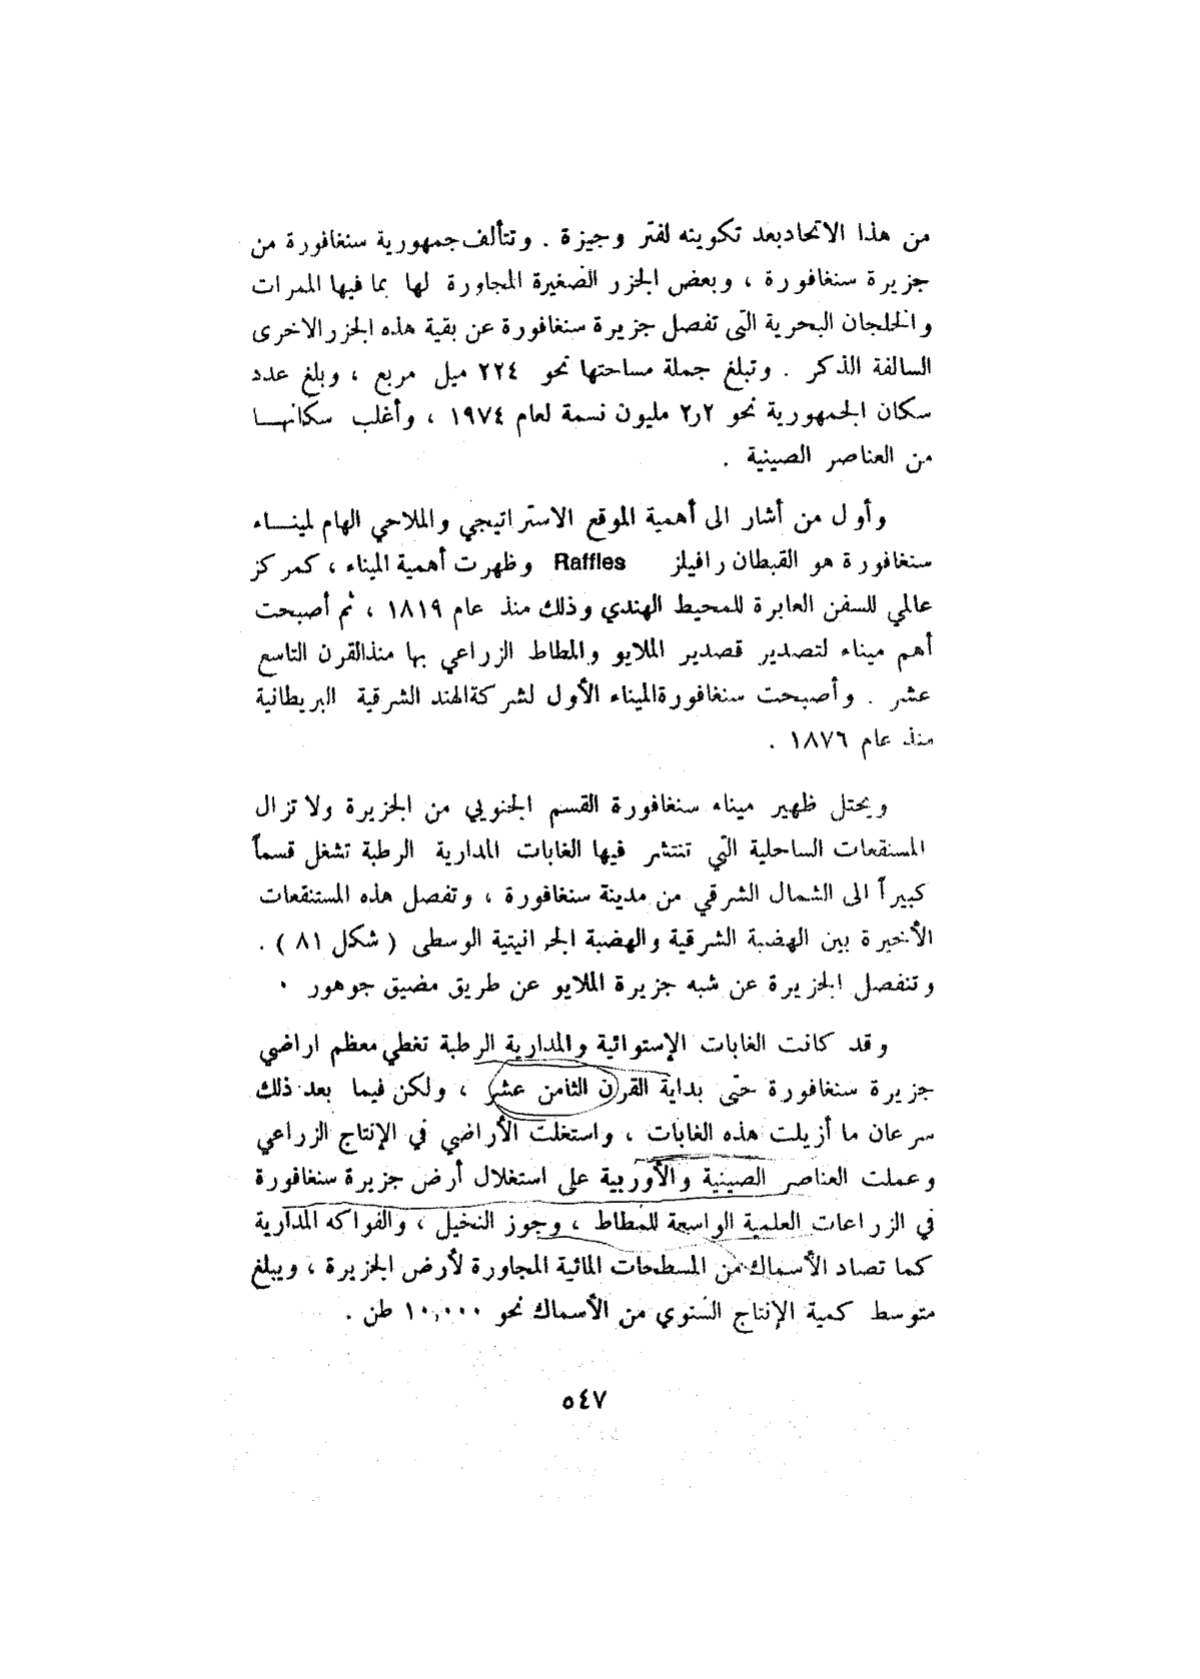 من هذا الاتحادبعد تكوينه لفتر وجيزة . وتتألف جمهورية سنغافورة من
جزيرة سنغافورة ، وبعض الجزر الصغيرة المجاورة لها بما فيها الممرات
والخلجان البحرية التى تفصل جزيرة سنغافورة عن بقية هذه الجزر الاخرى
السالفة الذكر . وتبلغ جملة مساحتها نحو ٢٢٤ ميل مربع ، وبلغ عدد
سكان الجمهورية نحو ٢ر٢ مليون نسمة لعام ١٩٧٤ ، وأغلب سكانهـــا
من العناصر الصينية .
وأول من أشار الى أهمية الموقع الاستراتيجي والملاحي الهام لمينـــاء
سنغافورة هو القبطان رافيلز Raffles وظهرت أهمية الميناء ، كمركز
عالمي للسفن العابرة للمحيط الهندي وذلك منذ عام ١٨١٩ ، ثم أصبحت
أهم ميناء لتصدير قصدير الملايو والمطاط الزراعي بها منذالقرن التاسع
عشر . وأصبحت سنغافورةالميناء الأول لشركةالهند الشرقية البريطانية
منذ عام ١٨٧٦ .
ويحتل ظهير ميناء سنغافورة القسم الجنوبي من الجزيرة ولا تزال
المسنقعات الساحلية التي تنتشر فيها الغابات المدارية الرطبة تشغل قسماً
كبيراً الى الشمال الشرقي من مدينة سنغافورة ، وتفصل هذه المستنقعات
الأخيرة بين الهضبة الشرقية والهضبة الجرانيتية الوسطى ( شكل ٨١ ) .
وتنفصل الجزيرة عن شبه جزيرة الملايو عن طريق مضيق جوهور .
وقد كانت الغابات الإستوائية والمدارية الرطبة تغطي معظم اراضي
جزيرة سنغافورة حتى بداية القرن الثامن عشر ، ولكن فيما بعد ذلك
سرعان ما أزيلت هذه الغابات ، واستغلت الأراضي في الإنتاج الزراعي
وعملت العناصر الصينية والأوربية على استغلال أرض جزيرة سنغافورة
في الزراعات العلمية الواسعة للمطاط ، وجوز النخيل ، والفواكه المدارية
كما تصاد الأسماك من المسطحات المائية المجاورة لأرض الجزيرة ، ويبلغ
متوسط كمية الإنتاج السنوي من الأسماك نحو ١٠,٠٠٠ طن .
٥٤٧